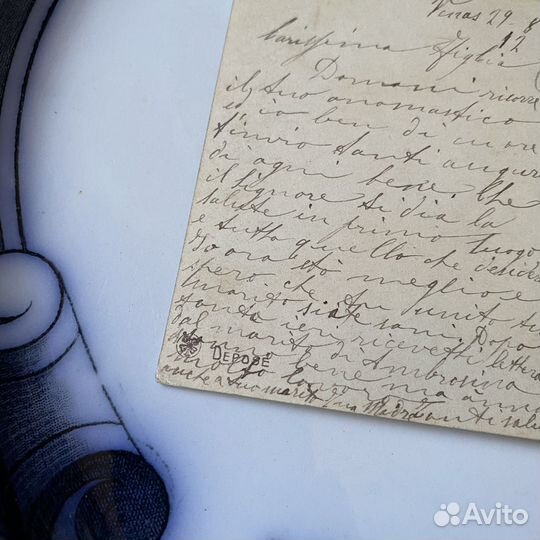 Venas 29 8
12
Carissima Figlia
Domani ricorre
il tuo onomastico
ed io ben di cuore
t'invio tanti auguri
di ogni bene. Che
il Signore ti dia la
salute in primo luogo
e tutto quello che desideri
Io ora sto meglio e
spero che tu unito tuo
marito siate sani. Dopo
tanto ieri ricevetti lettera
dal marito di Ambrosina
stanno bene ma
molto lavoro
anche a tuo marito tua Madre tanti saluti
DÉPOSÉ
Avito